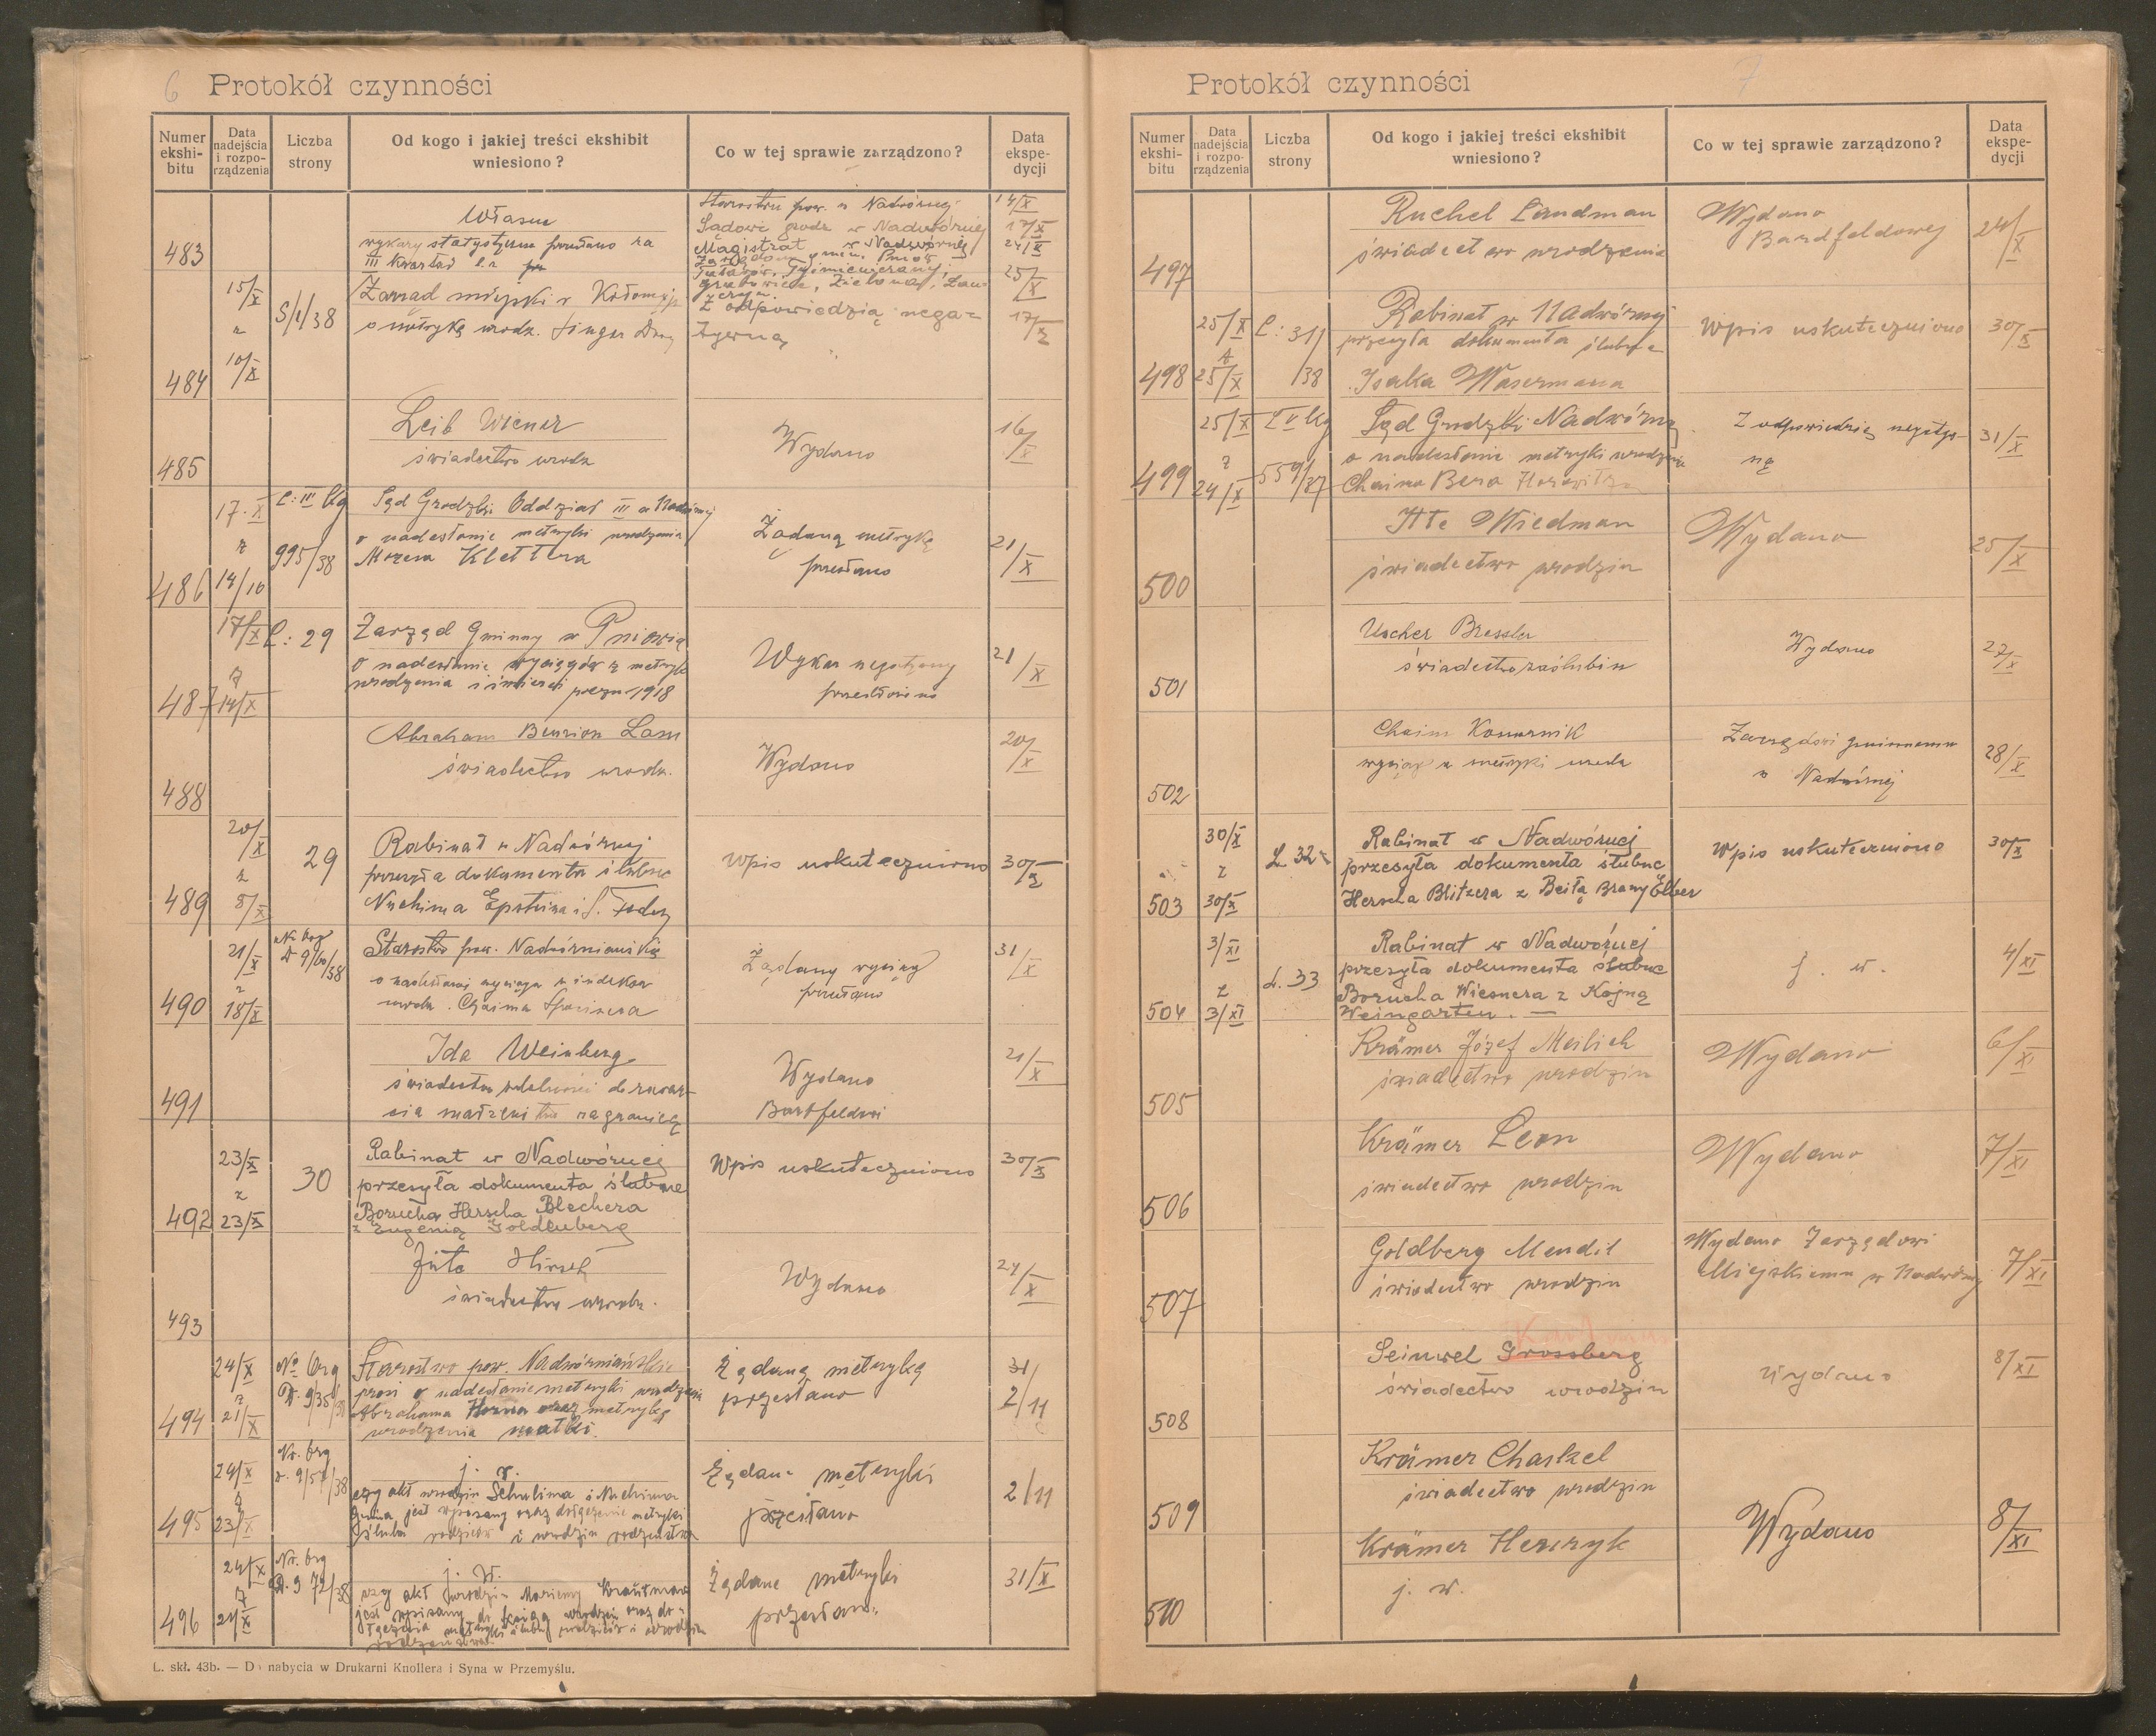 6 Protokół czynności
Numer ekshi-bitu
Data nadejścia i rozpo-rządzenia
Liczba strony
Od kogo i jakiej treści ekshibit wniesiono?
Co w tej sprawie zarządzono?
Data ekspe-dycji
Własne
wykazy statystyczne przesłano za
III Kwartał b.r.
483
Starostwu pow. w Nadwórnej
14/X
Sądowi grodz w Nadwórnej
17/X
Magistrat w Nadwórnej
24/X
25/X
15/X
z
10/X
S/1/38
Zarząd miejski w Kołomyji
o metrykę urodz. Singer
484
Z odpowiedzią nega-
tywną
17/X
Leib Wiener
świadectwo urodz
485
Wydano
16/X
17.X
z
14/10
L: III Kg
995/38
Sąd Grodzki Oddział III w Nadwórnej
o nadesłanie metryki urodzenia
Mozesa Klettera
486
Żądaną metrykę
przesłano
21/X
17/X
z
14/X
L: 29
Zarząd Gminny w Pniowie
o nadesłanie wyciągów z metryk
urodzenia i śmierci 1918
487
Wykaz negatywny
przesłano
21/X
Abraham Benzion Lam
świadectwo urodz.
488
Wydano
20/X
20/X
z
8/X
29
Rabinat w Nadwórnej
przesyła dokumenta ślubne
Nuchima Epsteina i
489
Wpis uskuteczniono
30/X
21/X
z
18/X
Starostwo pow. Nadwórniańskie
urodz. Chaima
490
Żądany wyciąg
przesłano
31/X
Ida Weinberg
świadectwo zdolności do zawar-
cia małżeństwa zagranicą
491
Wydano
Bartfeldowi
21/X
23/X
z
23/X
30
Rabinat w Nadwórnej
przesyła dokumenta ślubne
Borucha Herscha Blechera
z Eugenią Goldenberg
492
Wpis uskuteczniono
30/X
Hirsch
świadectwo urodz.
493
Wydano
24/X
24/X
z
21/X
No brg
D. 9/35/38
Starostwo pow. Nadwórniańskie
prosi o nadesłanie metryki urodzenia
Abrahama Horna oraz metrykę
urodzenia matki.
494
Żądaną metrykę
przesłano
31/
2/11
24/X
z
23/X
Nr. brg
D. 9/57/38
j. w.
czy akt urodzin Schulima i Nuchima
jest wpisany oraz dołączenie metryki
ślubu rodziców i urodzin rodzeństwa
495
Żądane metryki
przesłano
2/11
24/X
z
21/X
Nr. brg
D. 9 72/38
j. w.
czy akt urodzin
jest wpisany do księgi urodzeń oraz do-
łączenia metryki ślubu rodziców i urodzin
rodzeństwa
496
Żądane metryki
przesłano.
31/X
L. skł. 43b. — Do nabycia w Drukarni Knollera i Syna w Przemyślu.
Protokół czynności 7
Numer ekshi-bitu
Data nadejścia i rozpo-rządzenia
Liczba strony
Od kogo i jakiej treści ekshibit wniesiono?
Co w tej sprawie zarządzono?
Data ekspe-dycji
Ruchel Landman
świadectwo urodzenia
497
Wydano
Bardfeldowej
24/X
25/X
z
25/X
L: 31/
/38
Rabinat w Nadwórnej
przesyła dokumenta ślubne
Isaka Wasermana
498
Wpis uskuteczniono
30/X
25/X
z
24/X
L V Kg
559/37
Sąd Grodzki Nadwórna
o nadesłanie metryki urodzenia
Chaima Bera Horowitza
499
Z odpowiedzią negatyw-
ną
31/X
Itte Wiedman
świadectwo urodzin
500
Wydano
25/X
Uscher Bressler
świadectwo zaślubin
501
Wydano
27/X
Chaim
wyciąg z metryki urodz
502
Zarządowi gminnemu
w Nadwórnej
28/X
30/X
z
30/X
L. 32
Rabinat w Nadwórnej
przesyła dokumenta ślubne
Herscha Blitzera z Beilą Brany Elber
503
Wpis uskuteczniono
30/X
3/XI
z
3/XI
L. 33
Rabinat w Nadwórnej
przesyła dokumenta ślubne
Borucha Wiesnera z Kojną
Weingarten. —
504
j. w.
4/XI
Krämer Józef Meilich
świadectwo urodzin
505
Wydano
6/XI
Krämer Leon
świadectwo urodzin
506
Wydano
7/XI
Goldberg Mendil
świadectwo urodzin
507
Wydano Zarządowi
Miejskiemu w Nadwórnej
7/XI
Seinwel Grossberg
świadectwo urodzin
508
Wydano
8/XI
Krämer Chaskel
świadectwo urodzin
509
Krämer Henryk
j. w.
510
Wydano
8/XI